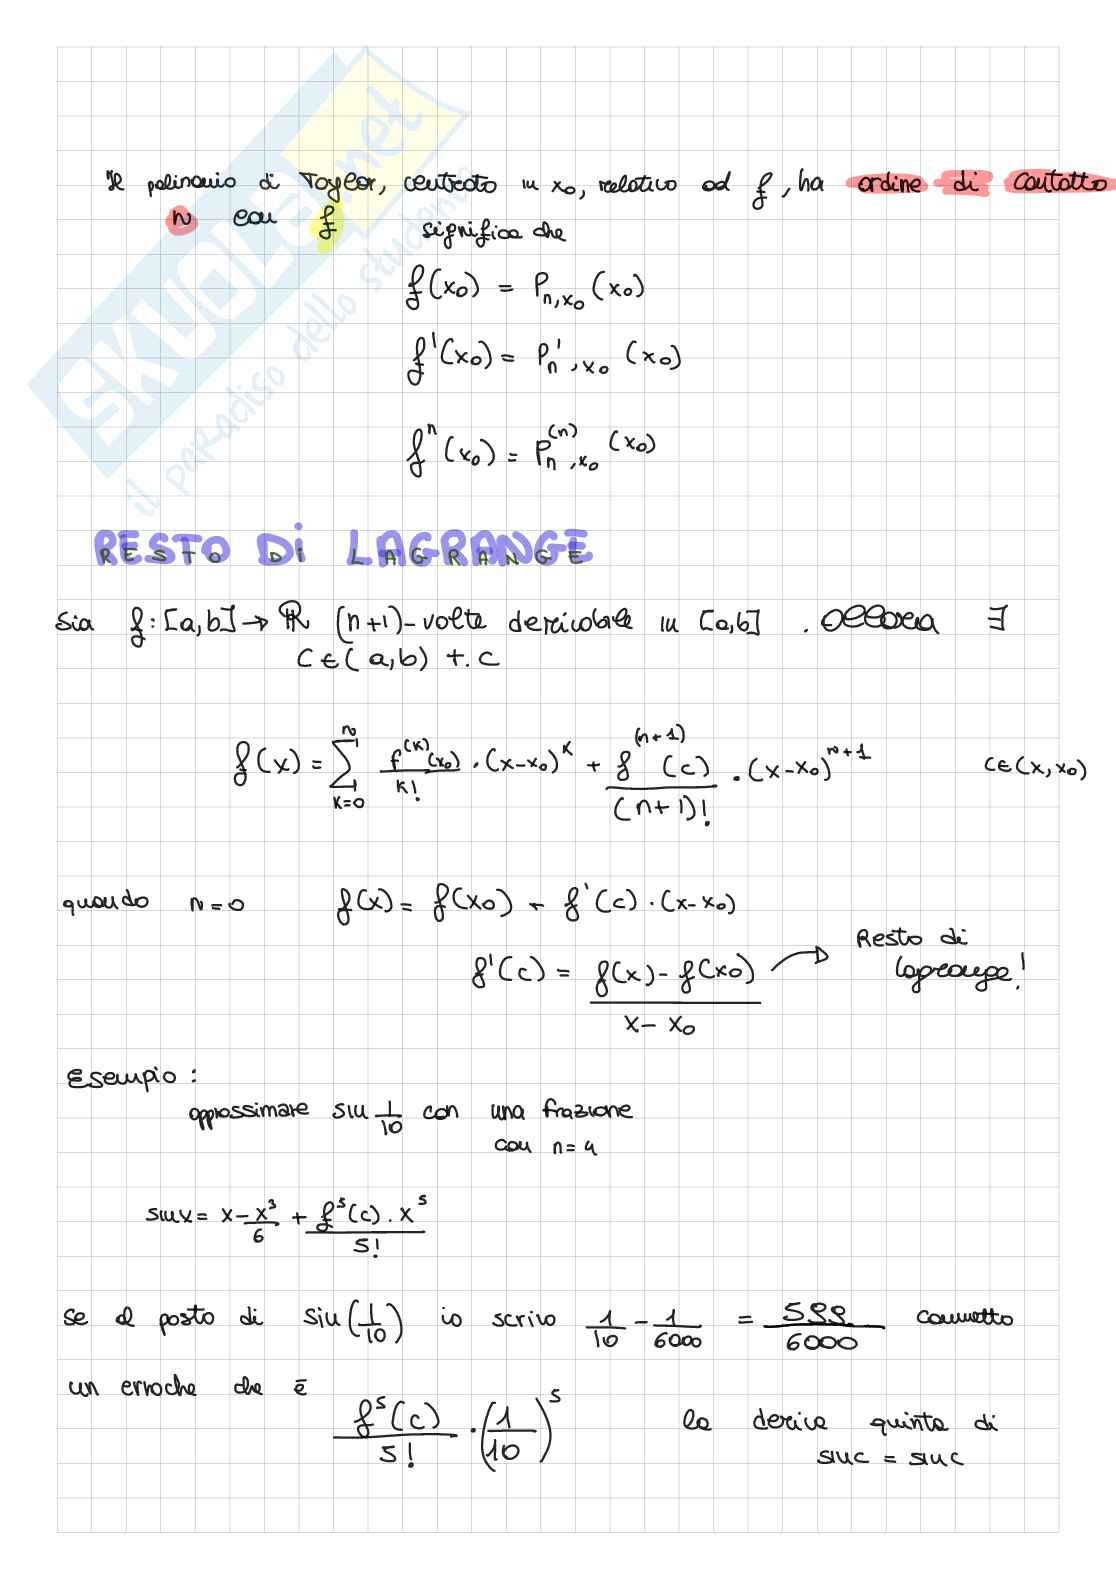 Il polinomio di Taylor, centrato in x₀, relativo ad f, ha ordine di contatto
n con f significa che
f(x₀) = P_{n,x₀}(x₀)
f'(x₀) = P'_{n,x₀}(x₀)
fⁿ(x₀) = P^{(n)}_{n,x₀}(x₀)
RESTO Di LAGRANGE
Sia f:[a,b]→ℝ (n+1)-volte derivabile in [a,b]. Allora ∃
C∈(a,b) t.c
f(x) = ∑_{k=0}^{n} f^{(k)}(x₀)/k! · (x-x₀)^k + f^{(n+1)}(c)/(n+1)! · (x-x₀)^{n+1} C∈(x,x₀)
quando n=0 f(x) = f(x₀) + f'(c)·(x-x₀)
f'(c) = (f(x) - f(x₀))/(x - x₀) → Resto di
Lagrange!
Esempio:
approssimare sin 1/10 con una frazione
con n=4
sinx = x - x³/6 + f⁵(c)·x⁵/5!
se al posto di Sin(1/10) io scrivo 1/10 - 1/6000 = 599/6000 commetto
un erroche che è f⁵(c)/5! · (1/10)⁵ la deriva quinta di
sinc = sinc
SKUOLA.net
il paradiso dello studente